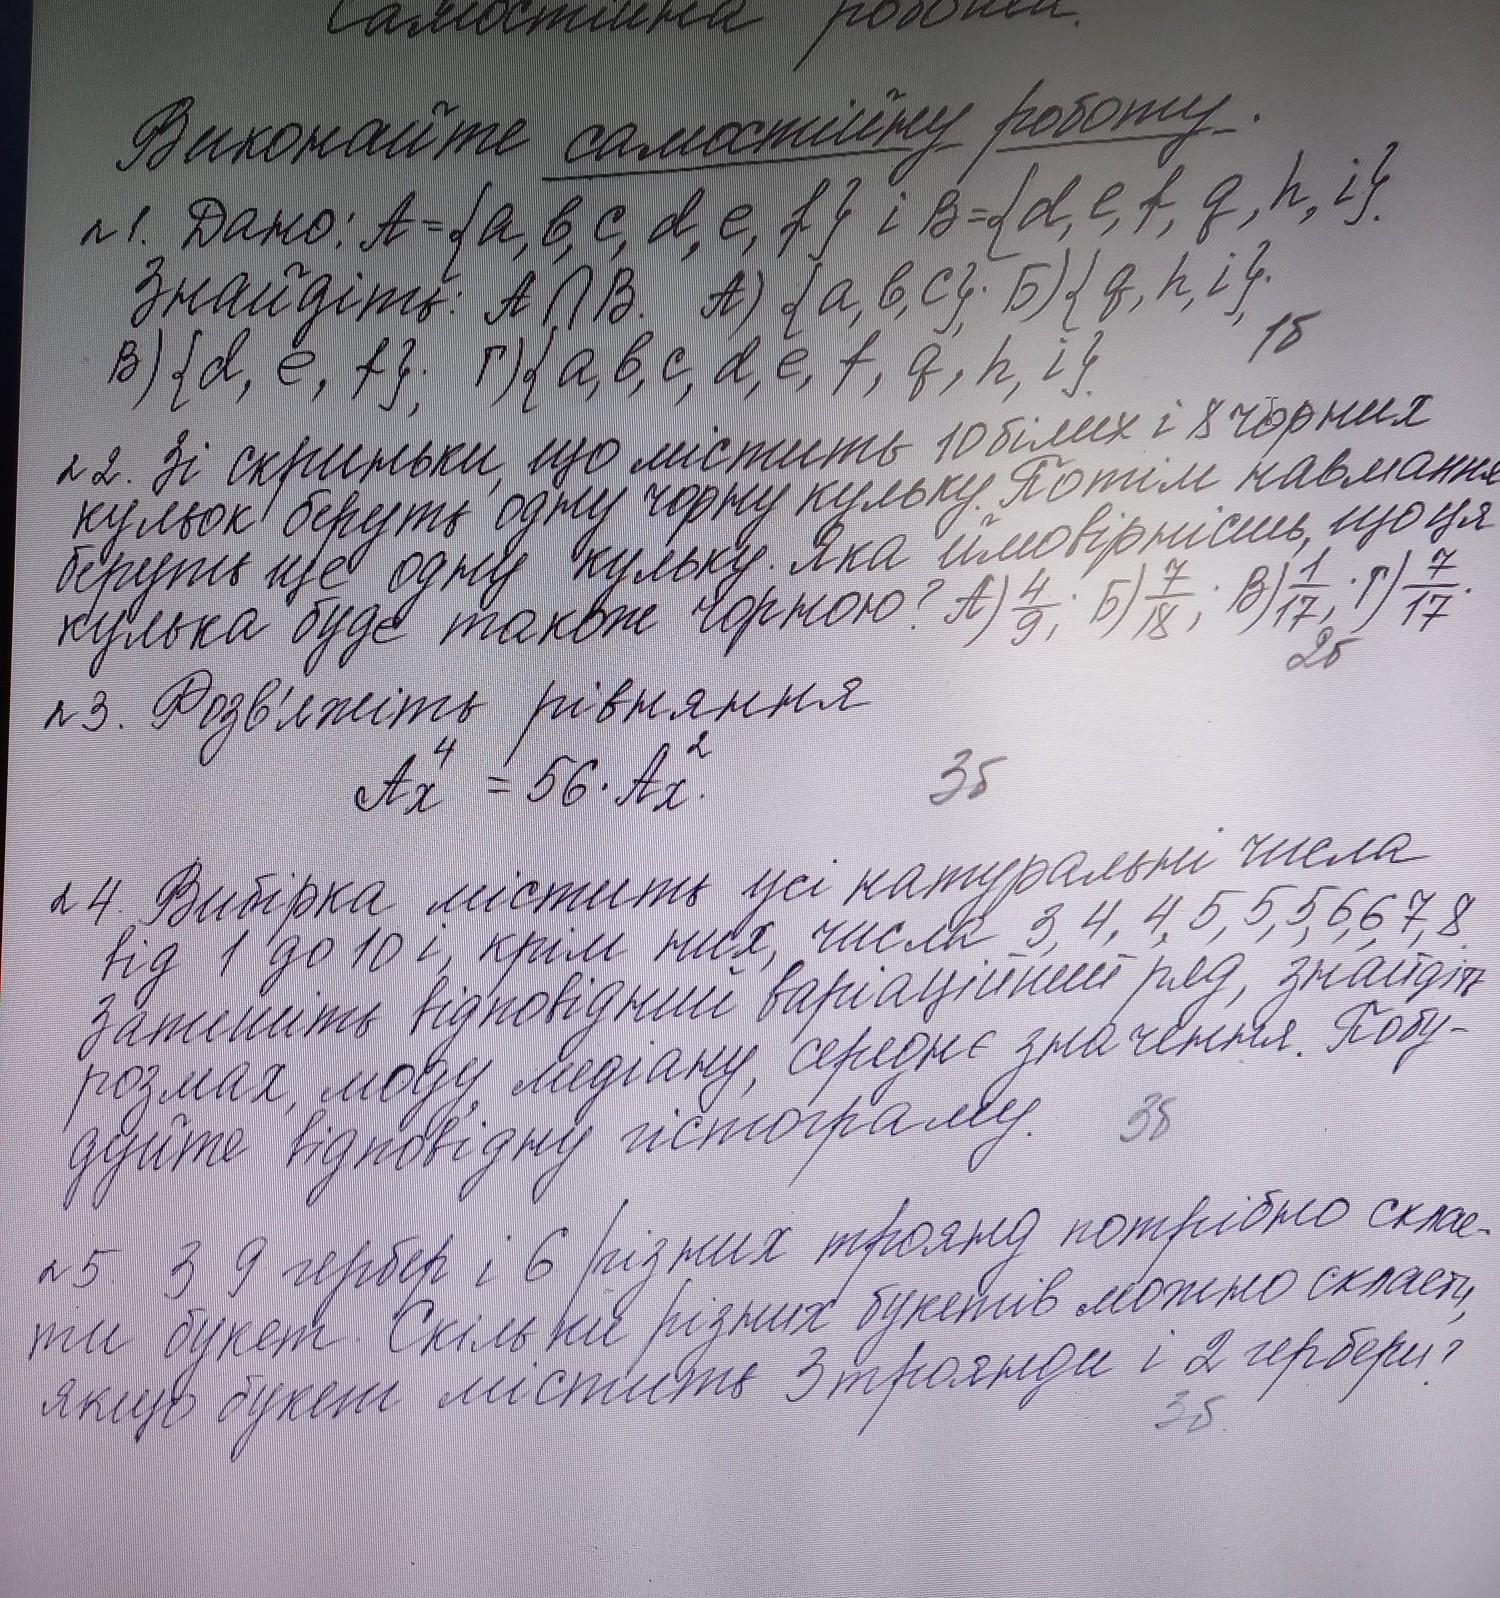 Самостійна робота.
Виконайте самостійну роботу.
№1. Дано: A={a,b,c,d,e,f} і B={d,e,f,g,h,i}.
Знайдіть: A∩B. А) {a,b,c}; Б) {g,h,i};
В) {d,e,f}; Г) {a,b,c,d,e,f,g,h,i}. 1б
№2. Зі скриньки, що містить 10 білих і 8 чорних
кульок беруть одну чорну кульку. Потім навмання
беруть ще одну кульку. Яка ймовірність, що ця
кулька буде також чорною? А) 4/9; Б) 7/18; В) 1/17; Г) 7/17.
2б
№3. Розв'яжіть рівняння
Aₓ⁴ = 56·Aₓ². 3б
№4. Вибірка містить усі натуральні числа
від 1 до 10 і, крім них, числа 3,4,4,5,5,5,6,6,7,8.
Запишіть відповідний варіаційний ряд, знайдіть
розмах, моду, медіану, середнє значення. Побу-
дуйте відповідну гістограму. 3б
№5. З 9 гербер і 6 різних троянд потрібно склас-
ти букет. Скільки різних букетів можно скласти,
якщо букет містить 3 троянди і 2 гербери?
3б.